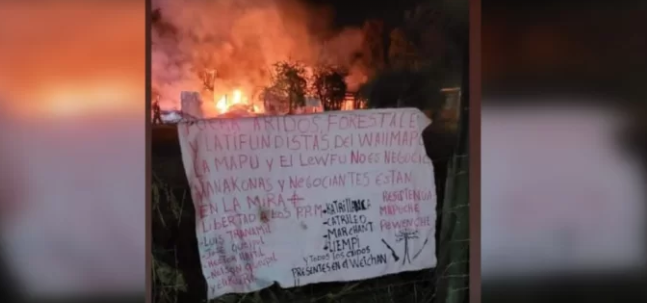 FUERA ARIDOS, FORESTALES
Y LATIFUNDISTAS DEL WALLMAPU
LA MAPU Y EL LEWFU NO ES NEGOCIO
YANAKONAS Y NEGOCIANTES ESTAN
EN LA MIRA
LIBERTAD A LOS P.P.M
-LUIS TRANAMIL
-JOSE QUEIPUL
-NELSON QUEIPUL
-CATRILEO
-MARCHANT
-LLEMPI
Y TODOS LOS CAIDOS
PRESENTES EN EL WEICHAN
RESISTENCIA
MAPUCHE